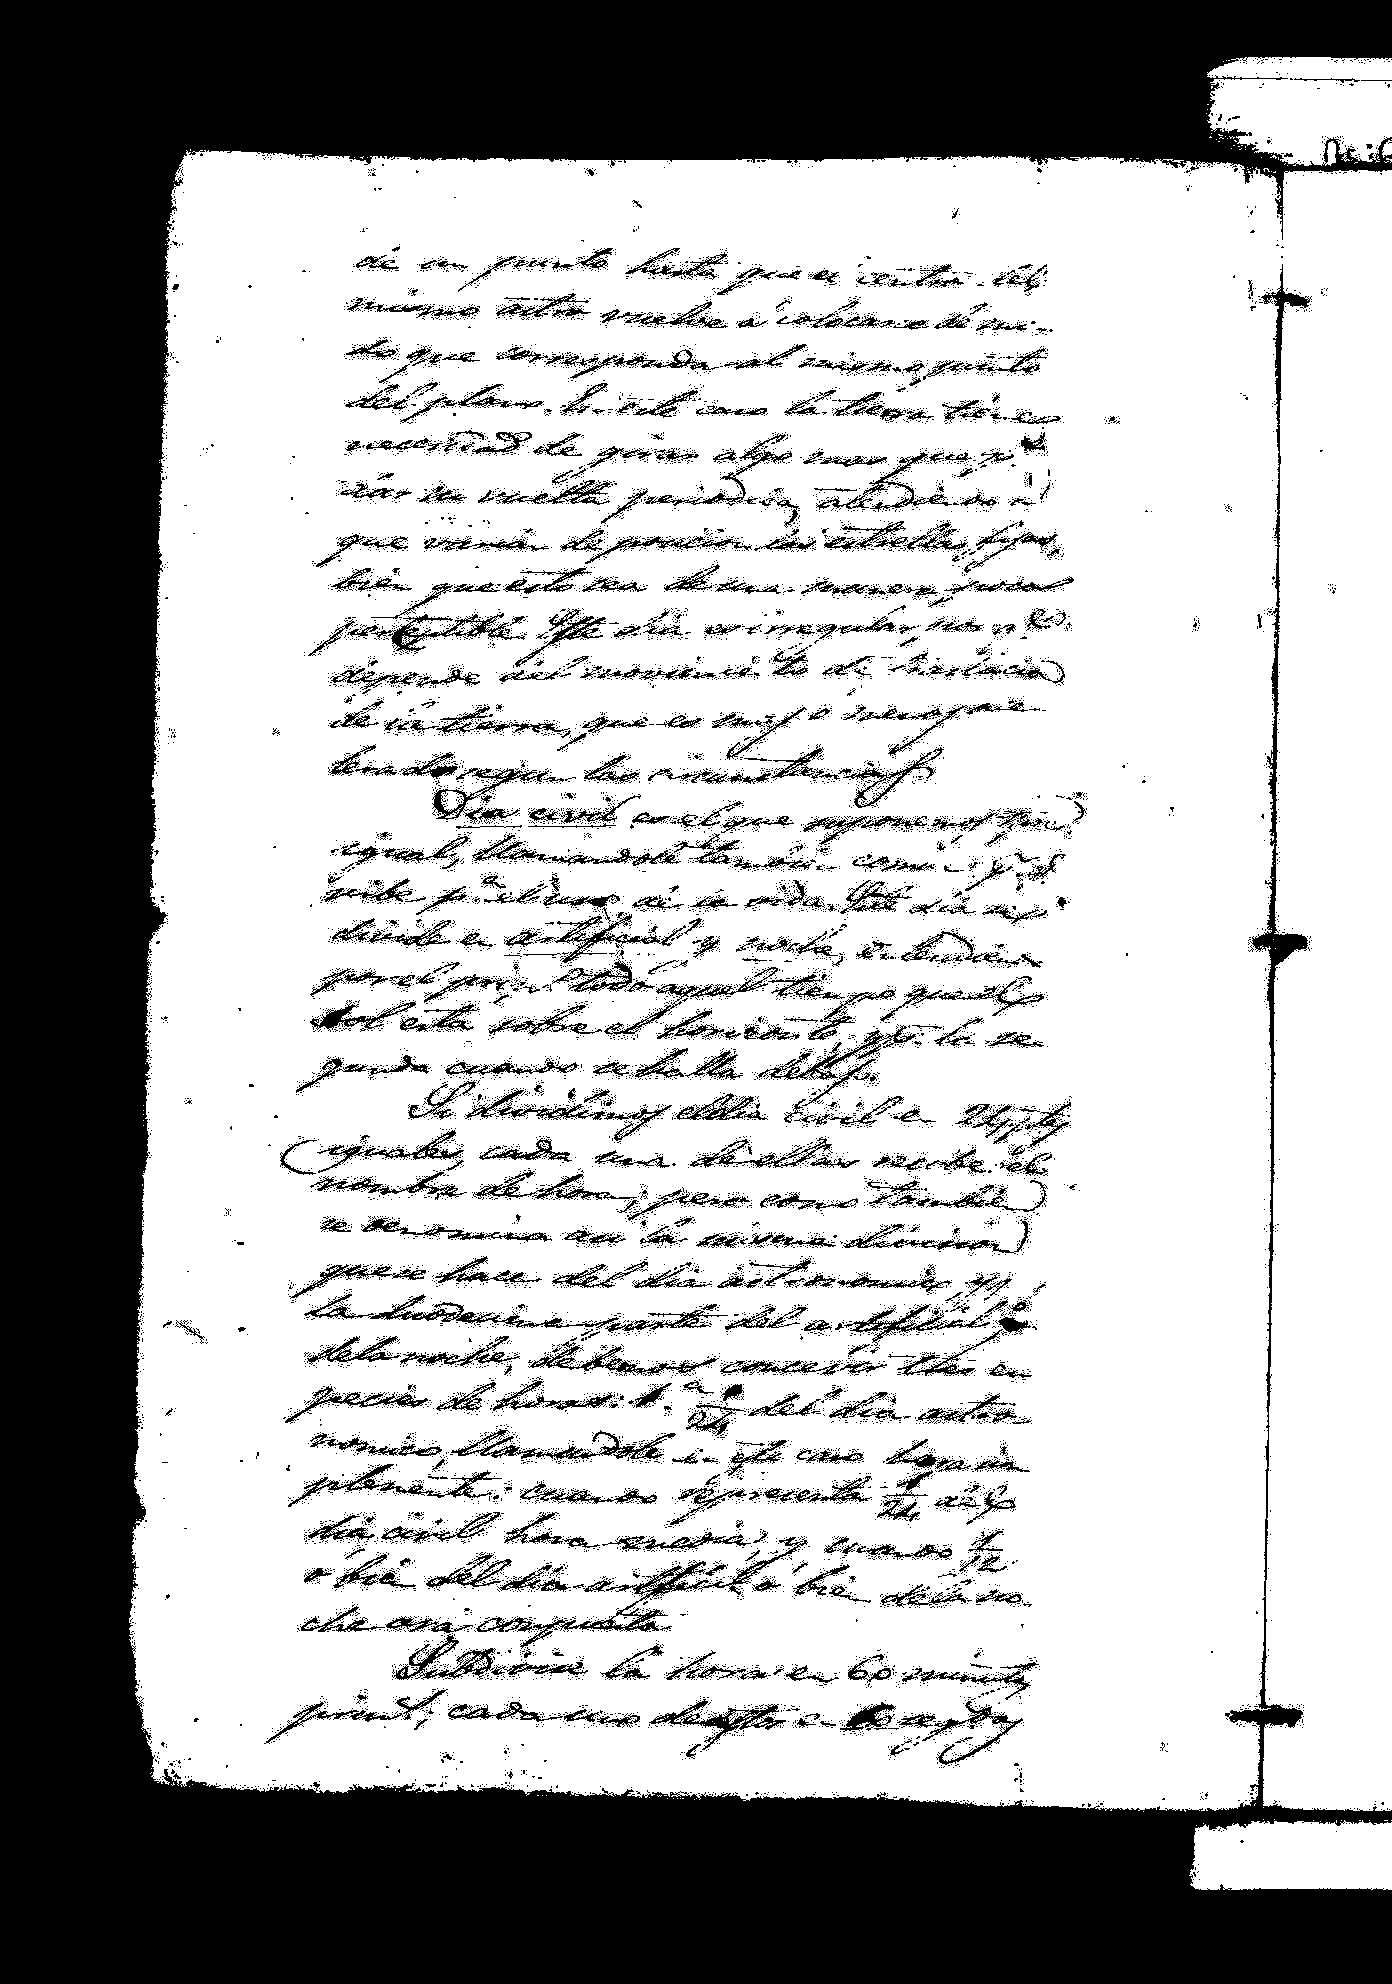 de un punto hasta que el centro del
mismo astro vuelve á colocarse de mo-
do que corresponda al mismo punto
del plano. En este caso la tierra tiene
necesidad de girar algo mas que p.ª
dar su vuelta periodica, atendiendo á
que varian de posicion las estrellas fijas,
bien que esto sea de una manera poco
perceptible. Este dia es irregular, pues
depende del movimiento de traslacion
de la tierra, que es mas ó menos
segun las circunstancias
Dia civil es el que suponemos
igual, llamandole tambien comun
sirbe p.ª el uso de la vida. Este dia se
divide en artificial y noche, entendiendo
por el prim.º todo aquel tiempo que el
sol está sobre el horizonte, y por la se
gunda cuando se halla debajo.
Si dividimos el dia civil en 24 ptes
iguales, cada una de ellas recibe el
nombre de hora; pero como tambien
se denomina asi la misma division
que se hace del dia astronomico, y
la duodecima parte del artificial y
de la noche, debemos concevir tres es
pecies de horas: 1.ª 1/24 del dia astro
nomico, llamandole en este caso hora sim
plemente: cuando representa 1/24 del
dia civil hora media, y cuando 1/12
ó bien del dia artificial ó bien de la no
che ora conjunta
Subdivise la hora en 60 minutos
prim.s, cada uno de estos en 60 seg.dos